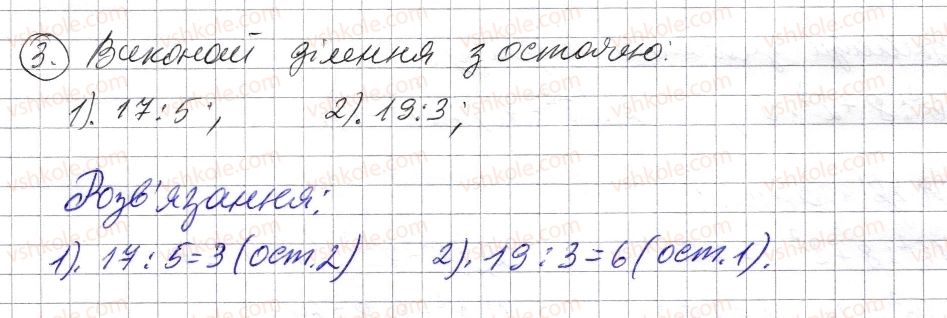 3. Виконай ділення з остачею:
1). 17:5; 2). 19:3;
Розв'язання:
1). 17:5=3(ост.2) 2). 19:3=6(ост.1).